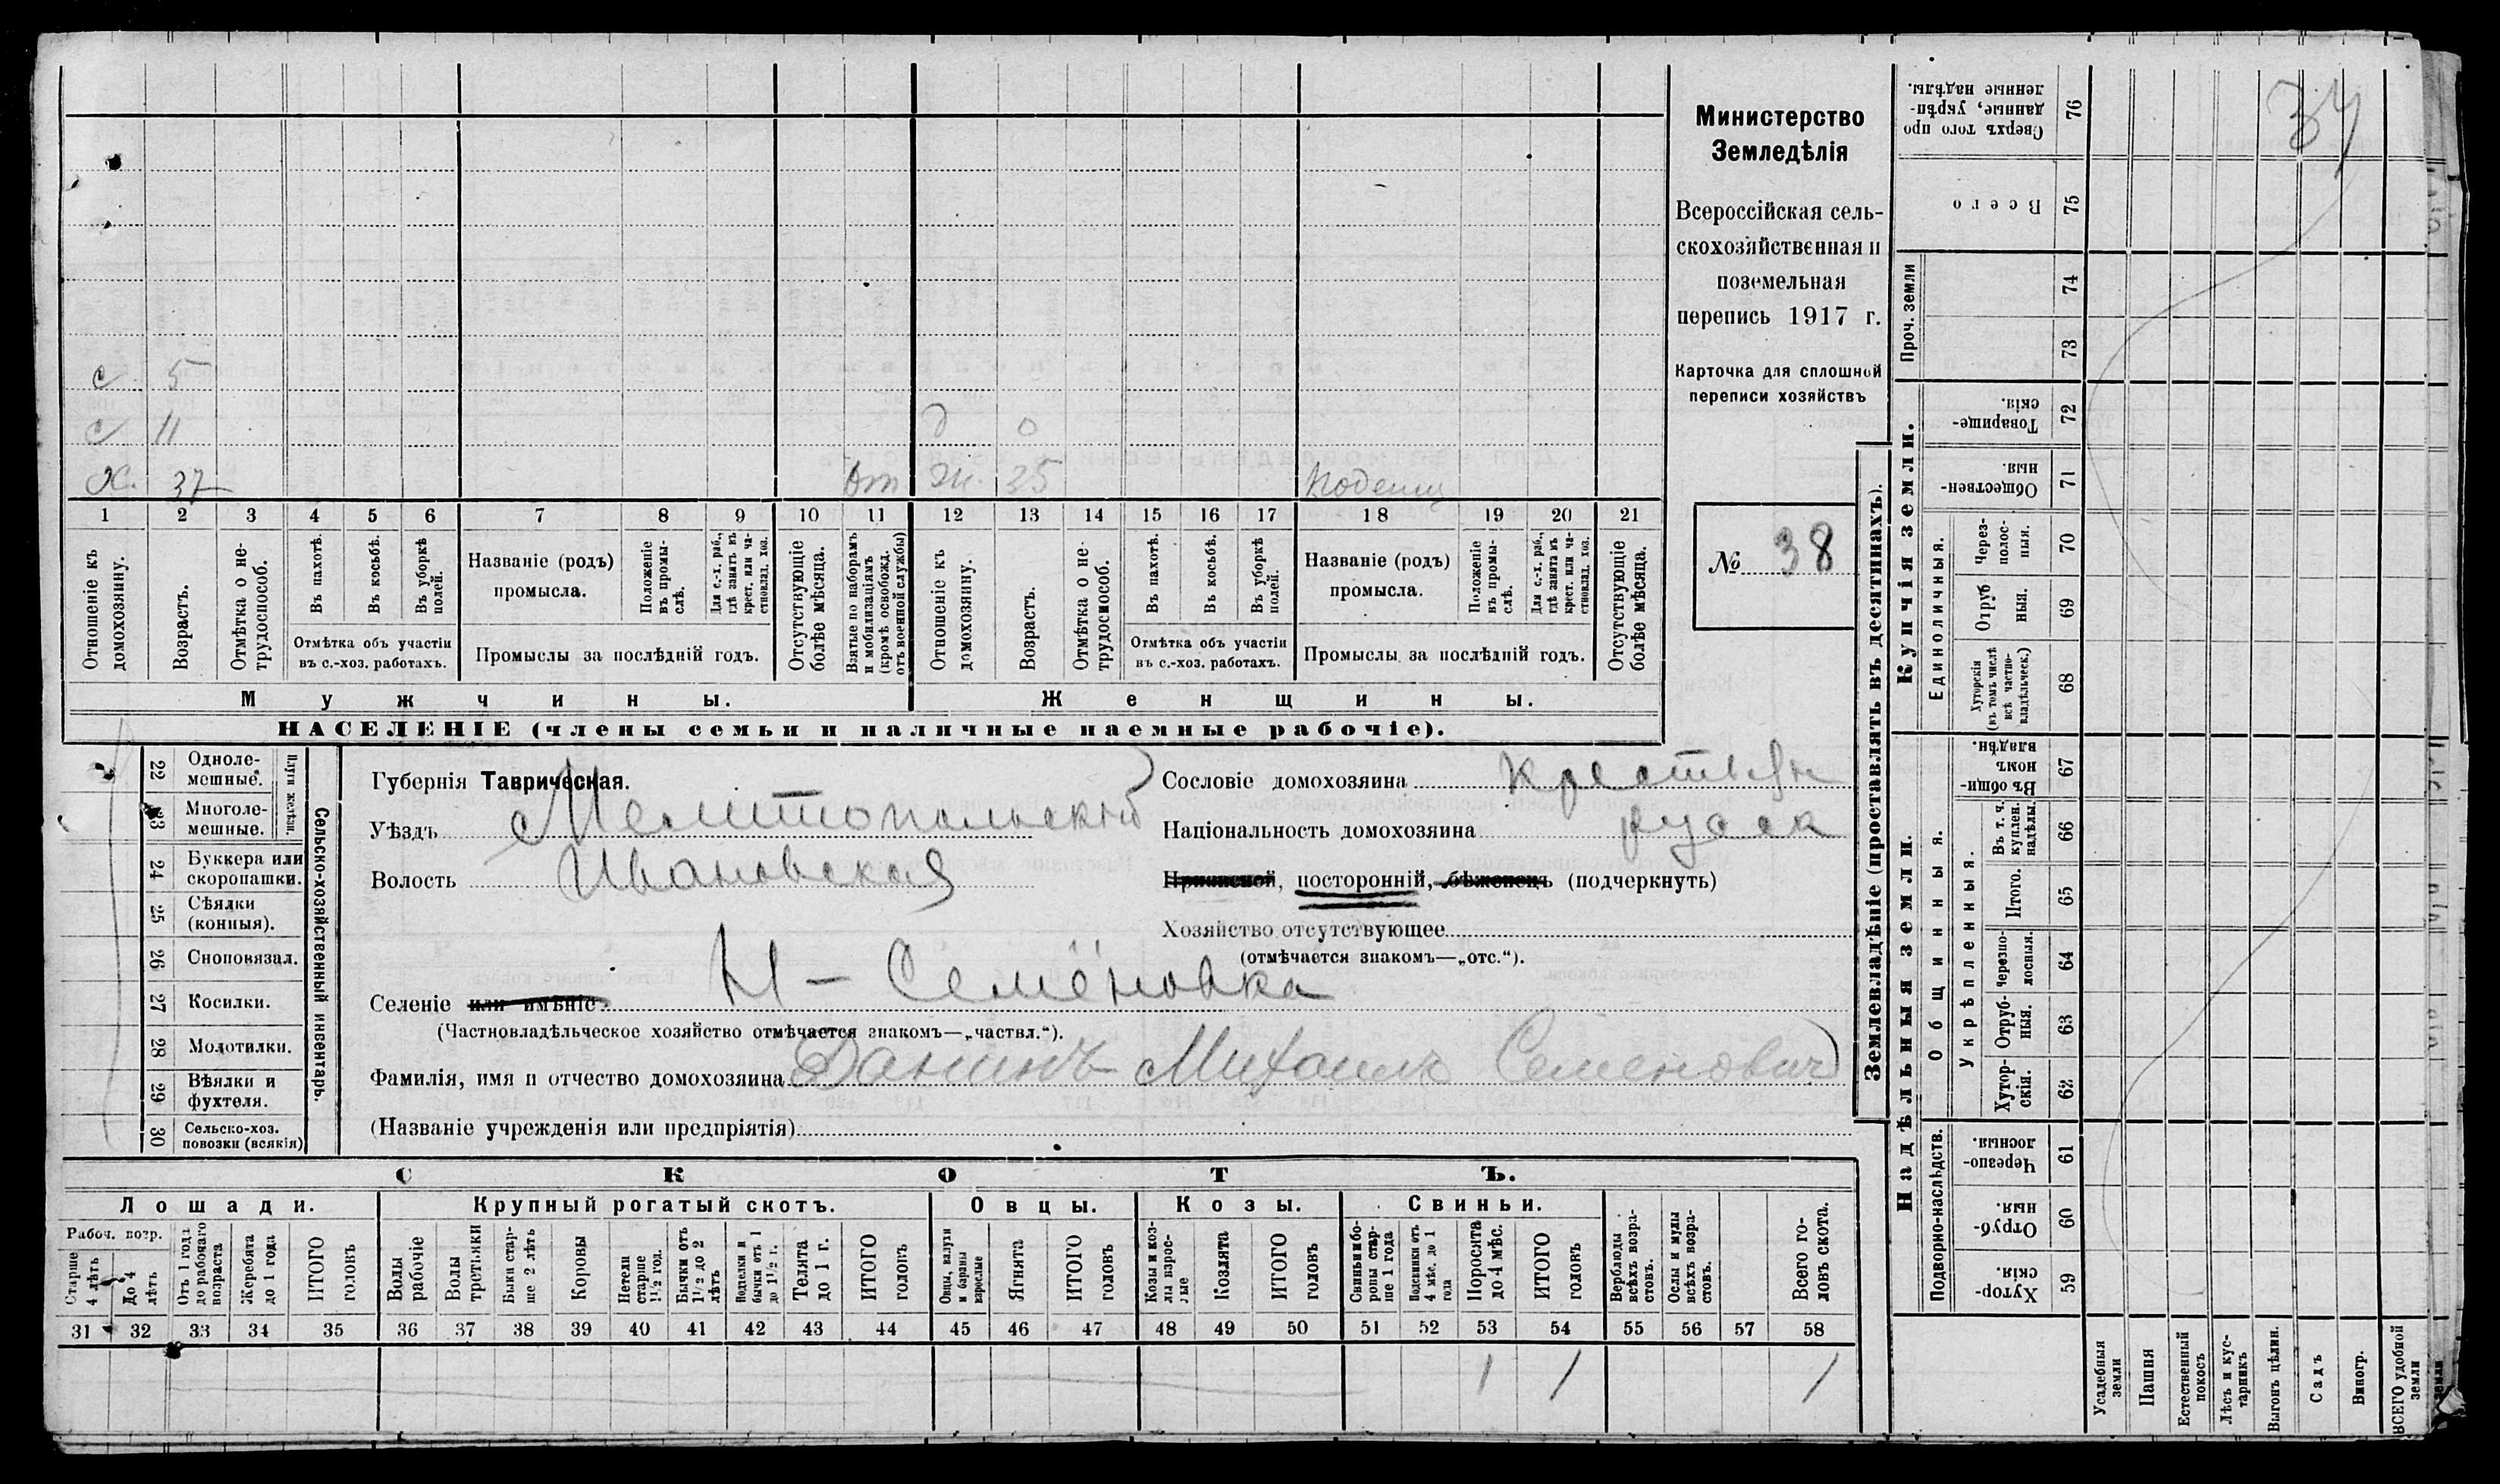 34
Министерство
Земледѣлія
Всероссійская сель-
скохозяйственная и
поземельная
перепись 1917 г.
Карточка для сплошной
переписи хозяйствъ
№ 38
с 5
с 11 д 0
Х. 37 От Ж. 35 Поденщ
1 2 3 4 5 6 7 8 9 10 11 12 13 14 15 16 17 18 19 20 21
Отношеніе къ домохозяину.
Возрастъ.
Отмѣтка о не-трудоспособ.
Въ пахотѣ.
Въ косьбѣ.
Въ уборкѣ полей.
Отмѣтка объ участіи
въ с.-хоз. работахъ.
Названіе (родъ)
промысла.
Положеніе въ промы-слѣ.
Для с.-х. раб., гдѣ занятъ въ крест. или ча-стновлад. хоз.
Промыслы за послѣдній годъ.
Отсутствующіе болѣе мѣсяца.
Взятые по наборамъ и мобилизаціямъ (кромѣ освобожд. отъ военной службы)
Отношеніе къ домохозяину.
Возрастъ.
Отмѣтка о не-трудоспособ.
Въ пахотѣ.
Въ косьбѣ.
Въ уборкѣ полей.
Отмѣтка объ участіи
въ с.-хоз. работахъ.
Названіе (родъ)
промысла.
Положеніе въ промы-слѣ.
Для с.-х. раб., гдѣ занята въ крест. или ча-стновлад. хоз.
Промыслы за послѣдній годъ.
Отсутствующіе болѣе мѣсяца.
Мужчины. Женщины.
НАСЕЛЕНІЕ (члены семьи и наличные наемные рабочіе).
22 Одноле-мешные.
23 Многоле-мешные.
Плуги желѣзн.
24 Буккера или скоропашки.
25 Сѣялки (конныя).
26 Сноповязал.
27 Косилки.
28 Молотилки.
29 Вѣялки и фухтеля.
30 Сельско-хоз. повозки (всякія)
Сельско-хозяйственный инвентарь.
Губернія Таврическая.
Уѣздъ Мелитопольскій
Волость Ивановская
Сословіе домохозяина крестьян
Національность домохозяина русск
Приписной, посторонній, бѣженецъ (подчеркнуть)
Хозяйство отсутствующее
(отмѣчается знакомъ—„отс.“).
Селеніе или имѣніе: Н-Семёновка
(Частновладѣльческое хозяйство отмѣчается знакомъ—„частвл.“).
Фамилія, имя и отчество домохозяина Данинъ Михаилъ Семенович
(Названіе учрежденія или предпріятія)
СКОТЪ.
Лошади. Крупный рогатый скотъ. Овцы. Козы. Свиньи.
Рабоч. возр.
Старше 4 лѣтъ
До 4 лѣтъ
Отъ 1 года до рабочаго возраста
Жеребята до 1 года
ИТОГО головъ
Волы рабочіе
Волы третьяки
Быки стар-ше 2 лѣтъ
Коровы
Нетели старше 1½ год.
Бычки отъ 1½ до 2 лѣтъ
Подтелки и бычки отъ 1 до 1½ г.
Телята до 1 г.
ИТОГО головъ
Овцы, валухи и бараны взрослые
Ягнята
ИТОГО головъ
Козы и коз-лы взрос-лые
Козлята
ИТОГО головъ
Свиньи и бо-ровы стар-ше 1 года
Подсвинки отъ 4 мѣс. до 1 года
Поросята до 4 мѣс.
ИТОГО головъ
Верблюды всѣхъ возра-стовъ.
Ослы и мулы всѣхъ возра-стовъ.
Всего го-ловъ скота.
31 32 33 34 35 36 37 38 39 40 41 42 43 44 45 46 47 48 49 50 51 52 53 54 55 56 57 58
1 1 1
Землевладѣніе (проставлять въ десятинахъ).
Купчія земли.
Сверхъ того про данные, укрѣп-ленные надѣлы. 76
Всего 75
Проч. земли 74
73
Товарище-скія. 72
Обществен-ныя. 71
Единоличныя.
Через-полос-ныя. 70
Отруб ныя. 69
Хуторскія (въ томъ числѣ всѣ частно-владѣльческ.) 68
Надѣльныя земли.
Общинныя.
Въ общи-номъ владѣн. 67
Укрѣпленныя.
Въ т. ч. куплен. надѣлы. 66
Итого. 65
Черезпо-лосныя. 64
Отруб-ныя. 63
Хутор-скія. 62
Подворно-наслѣдств.
Черезпо-лосныя. 61
Отруб-ныя. 60
Хутор-скія. 59
Усадебныя земли
Пашня
Естественный покосъ
Лѣсъ и кус-тарникъ
Выгонъ цѣлин.
Садъ
Виногр.
ВСЕГО удобной земли